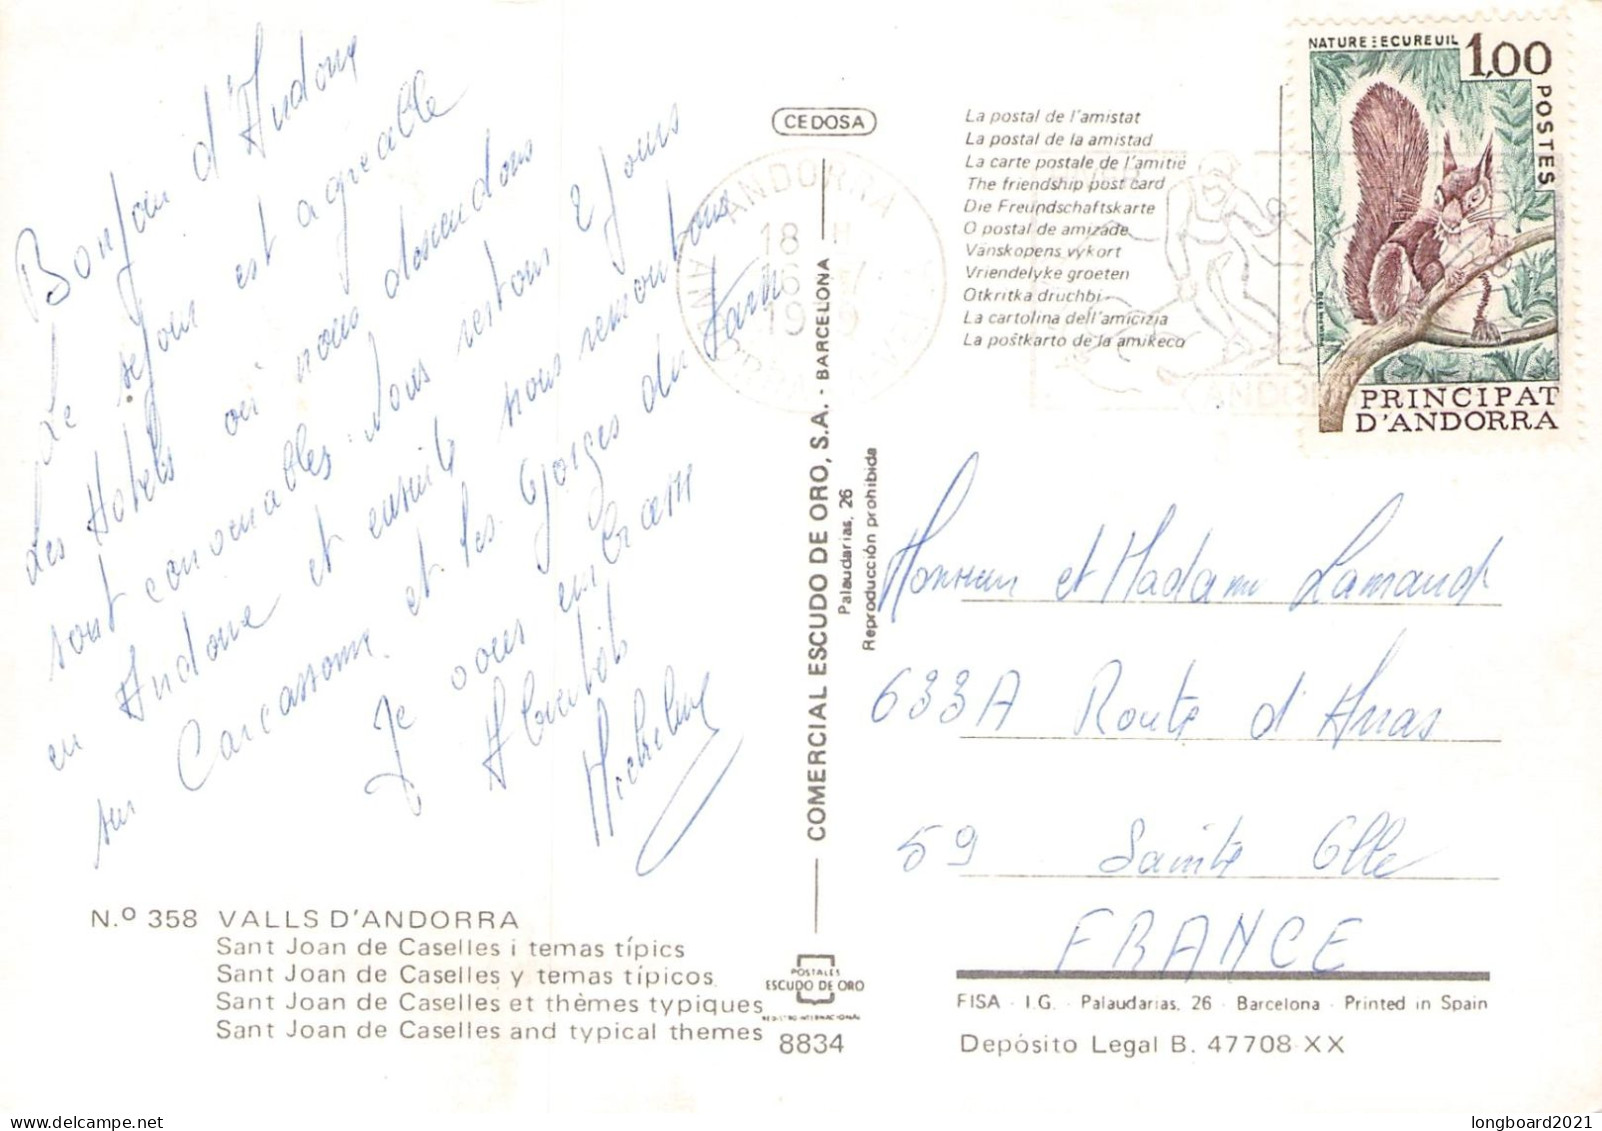 Bonjour d'Andorre
Le séjour est agréable
Les Hotels où nous descendons
sont convenables. Nous restons 2 jours
en Andorre et ensuite nous remontons
sur Carcassonne et les Gorges du Tarn
Je vous embrasse
Micheline
N.º 358 VALLS D'ANDORRA
Sant Joan de Caselles i temas típics
Sant Joan de Caselles y temas típicos
Sant Joan de Caselles et thèmes typiques
Sant Joan de Caselles and typical themes
CEDOSA
COMERCIAL ESCUDO DE ORO, S.A. - BARCELONA
Palaudarias, 26
Reproducción prohibida
POSTALES
ESCUDO DE ORO
REGISTRO INTERNACIONAL
8834
ANDORRA
18 H
La postal de l'amistat
La postal de la amistad
La carte postale de l'amitié
The friendship post card
Die Freundschaftskarte
O postal de amizade
Vanskopens vykort
Vriendelyke groeten
Otkritka druchbi
La cartolina dell'amicizia
La poŝtkarto de la amikeco
NATURE : ECUREUIL
1,00
POSTES
PRINCIPAT
D'ANDORRA
Monsieur et Madame Lamand
633A Route d'Arras
59 Sainte Olle
FRANCE
FISA - I.G. - Palaudarias, 26 - Barcelona - Printed in Spain
Depósito Legal B. 47708-XX
longboard2021